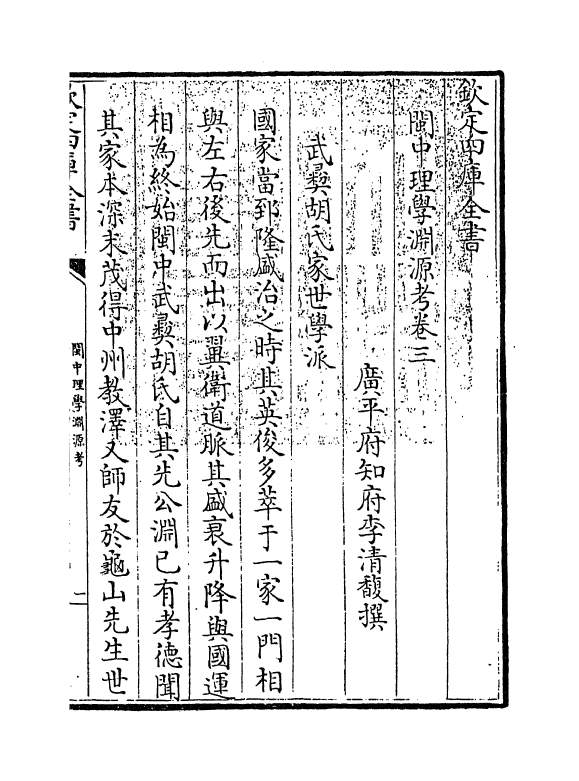 欽定四庫全書
閩中理學淵源考卷三
廣平府知府李清馥撰
武彛胡氏家世學派
國家當郅隆盛治之時其英俊多萃于一家一門相
與左右後先而出以翼衛道脈其盛衰升降與國運
相為終始閩中武彛胡氏自其先公淵已有孝德聞
其家本深末茂得中州教澤又師友於龜山先生世
欽定四庫全書
閩中理學淵源考